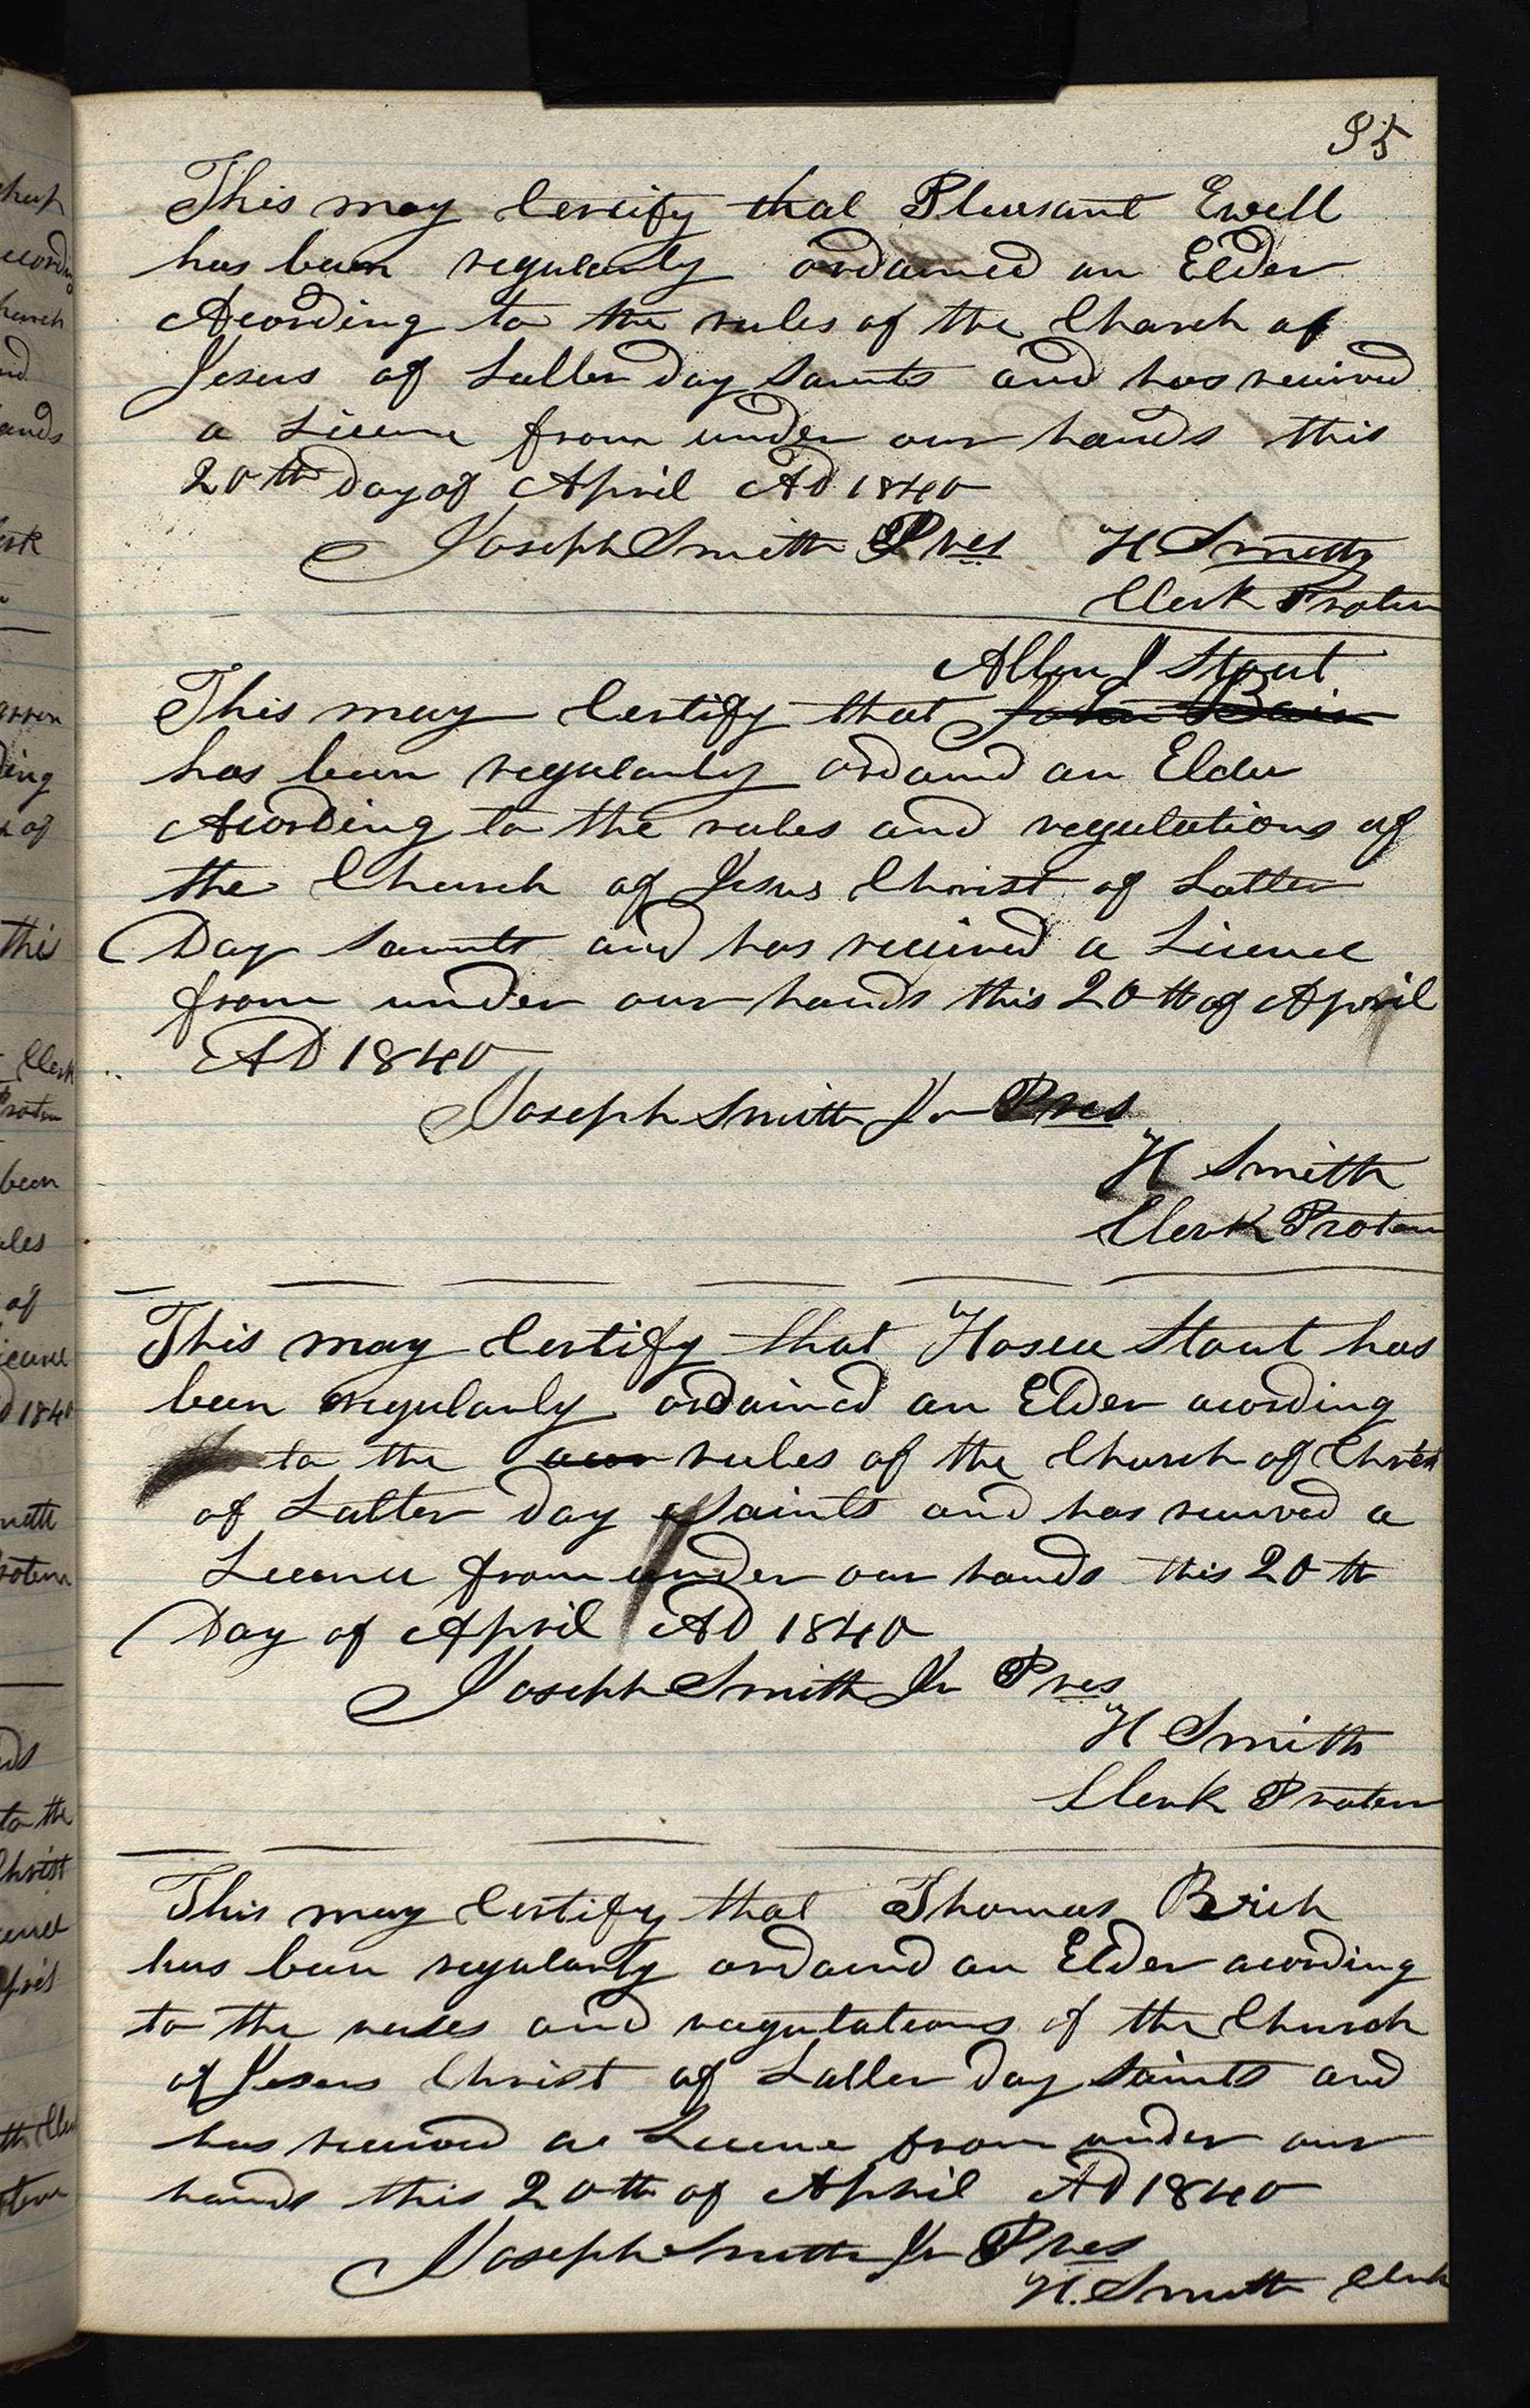 95
This may Certify that Pleasant Ewell
has been regularly ordained an Elder
Acording to the rules of the Church of
Jesus of Latter Day Saints and has received
a Licence from under our hands this
20th Day of April AD 1840
Joseph Smith Pres H Smith
Clerk Protem
Allen J Stout
This may Certify that John Bair
has been regularly ordaind an Elder
Acording to the rules and regulations of
the Church of Jesus Christ of Latter
Day Saints and has received a Licence
from under our hands this 20th of April
AD 1840
Joseph Smith Jr Pres
H Smith
Clerk Protem
This may Certify that Hosea Stout has
been regularly ordained an Elder acording
to the rules of the Church of Christ
of Latter Day Saints and has received a
Licence from under our hands this 20th
Day of April AD 1840
Joseph Smith Jr Pres
H Smith
Clerk Protem
This may Certify that Thomas Brich
has been regularly ordaind an Elder acording
to the rules and regulations of the Church
of Jesus Christ of Latter Day Saints and
has received a Licence from under our
hands this 20th of April AD 1840
Joseph Smith Jr Pres
H. Smith Clerk